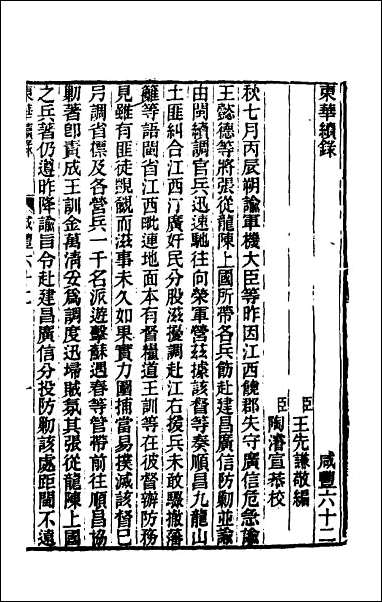 東華續錄　咸豐六十二
臣王先謙敬編
臣陶濬宣恭校
秋七月丙辰朔諭軍機大臣等昨因江西饒郡失守廣信危急諭
王懿德等將張從龍陳上國所帶各兵飭赴建昌廣信防勦並諭
由閩續調官兵迅速馳往向榮軍營茲據該督等奏順昌九龍山
土匪糾合江西汀廣奸民分股滋擾調赴江右援兵未敢驟撤藩
籬等語閩省江西毗連地面本有督糧道王訓等在彼督辦防務
見雖有匪徒覬覦而滋事未久如果實力圍捕當易撲滅該督已
弓調省標及各營兵一千名派遊擊蘇遇春等管帶前往順昌協
勦著卽責成王訓金萬清妥爲調度迅埽賊氛其張從龍陳上國
之兵著仍遵昨降諭旨令赴建昌廣信分投防勦該處距閩不遠
東華續錄　咸豐六十二　一